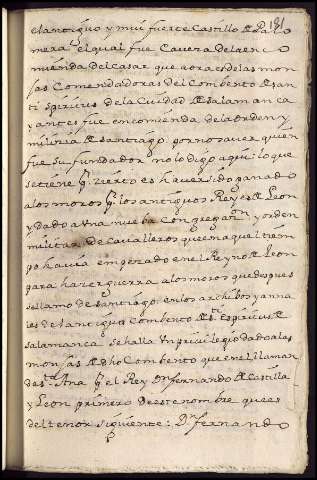 181
el antiguo y mui fuerte Castillo de Palo
mera, el qual fue Cavera de la enco
mienda del Casar que aora es de las mon
jas Comendadoras del Combento de San
ti spiritus de la Ciudad de Salamanca
y antes fue encomienda de la orden y
milicia de Santiago. por no saver quien
fue su fundador no lo digo aqui: lo que
se tiene pr. zierto es haver sido ganado
a los moros pr. los antiguos Reyes de Leon
y dado a una nueba Congregaon. y orden
militar de Cavalleros que en aquel tiem
po havia empezado en el Reyno de Leon
para hazer guerra a los moros que despues
se llamo de Santiago. en los archibos y anna
les del antiguo Combento de Sti. Espiritus de
Salamanca se halla un privilegio dado a las
monjas de dho Combento que en el llaman
de Sta. Ana pr. el Rey Dn fernando de Castilla
y Leon primero de este nombre, que es
del tenor siguiente: Dn. fernando